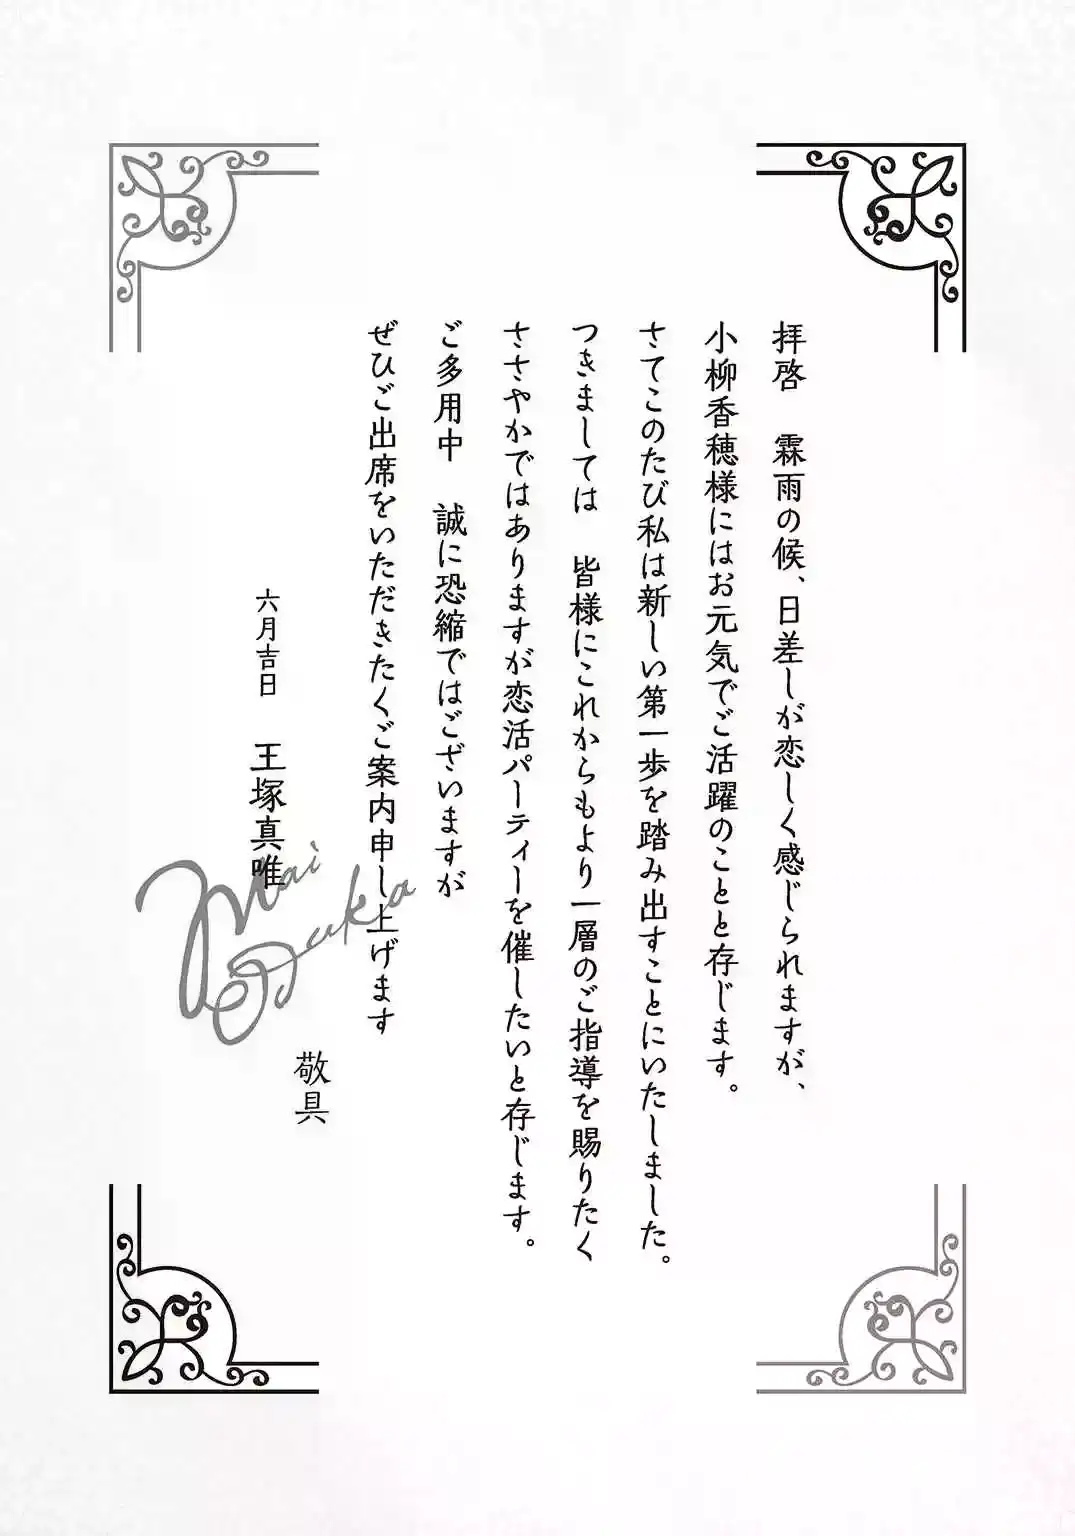 拝啓　霖雨の候、日差しが恋しく感じられますが、
小柳香穂様にはお元気でご活躍のことと存じます。
さてこのたび私は新しい第一歩を踏み出すことにいたしました。
つきましては　皆様にこれからもより一層のご指導を賜りたく
ささやかではありますが恋活パーティーを催したいと存じます。
ご多用中　誠に恐縮ではございますが
ぜひご出席をいただきたくご案内申し上げます
敬具
六月吉日　王塚真唯
Mai Oduka